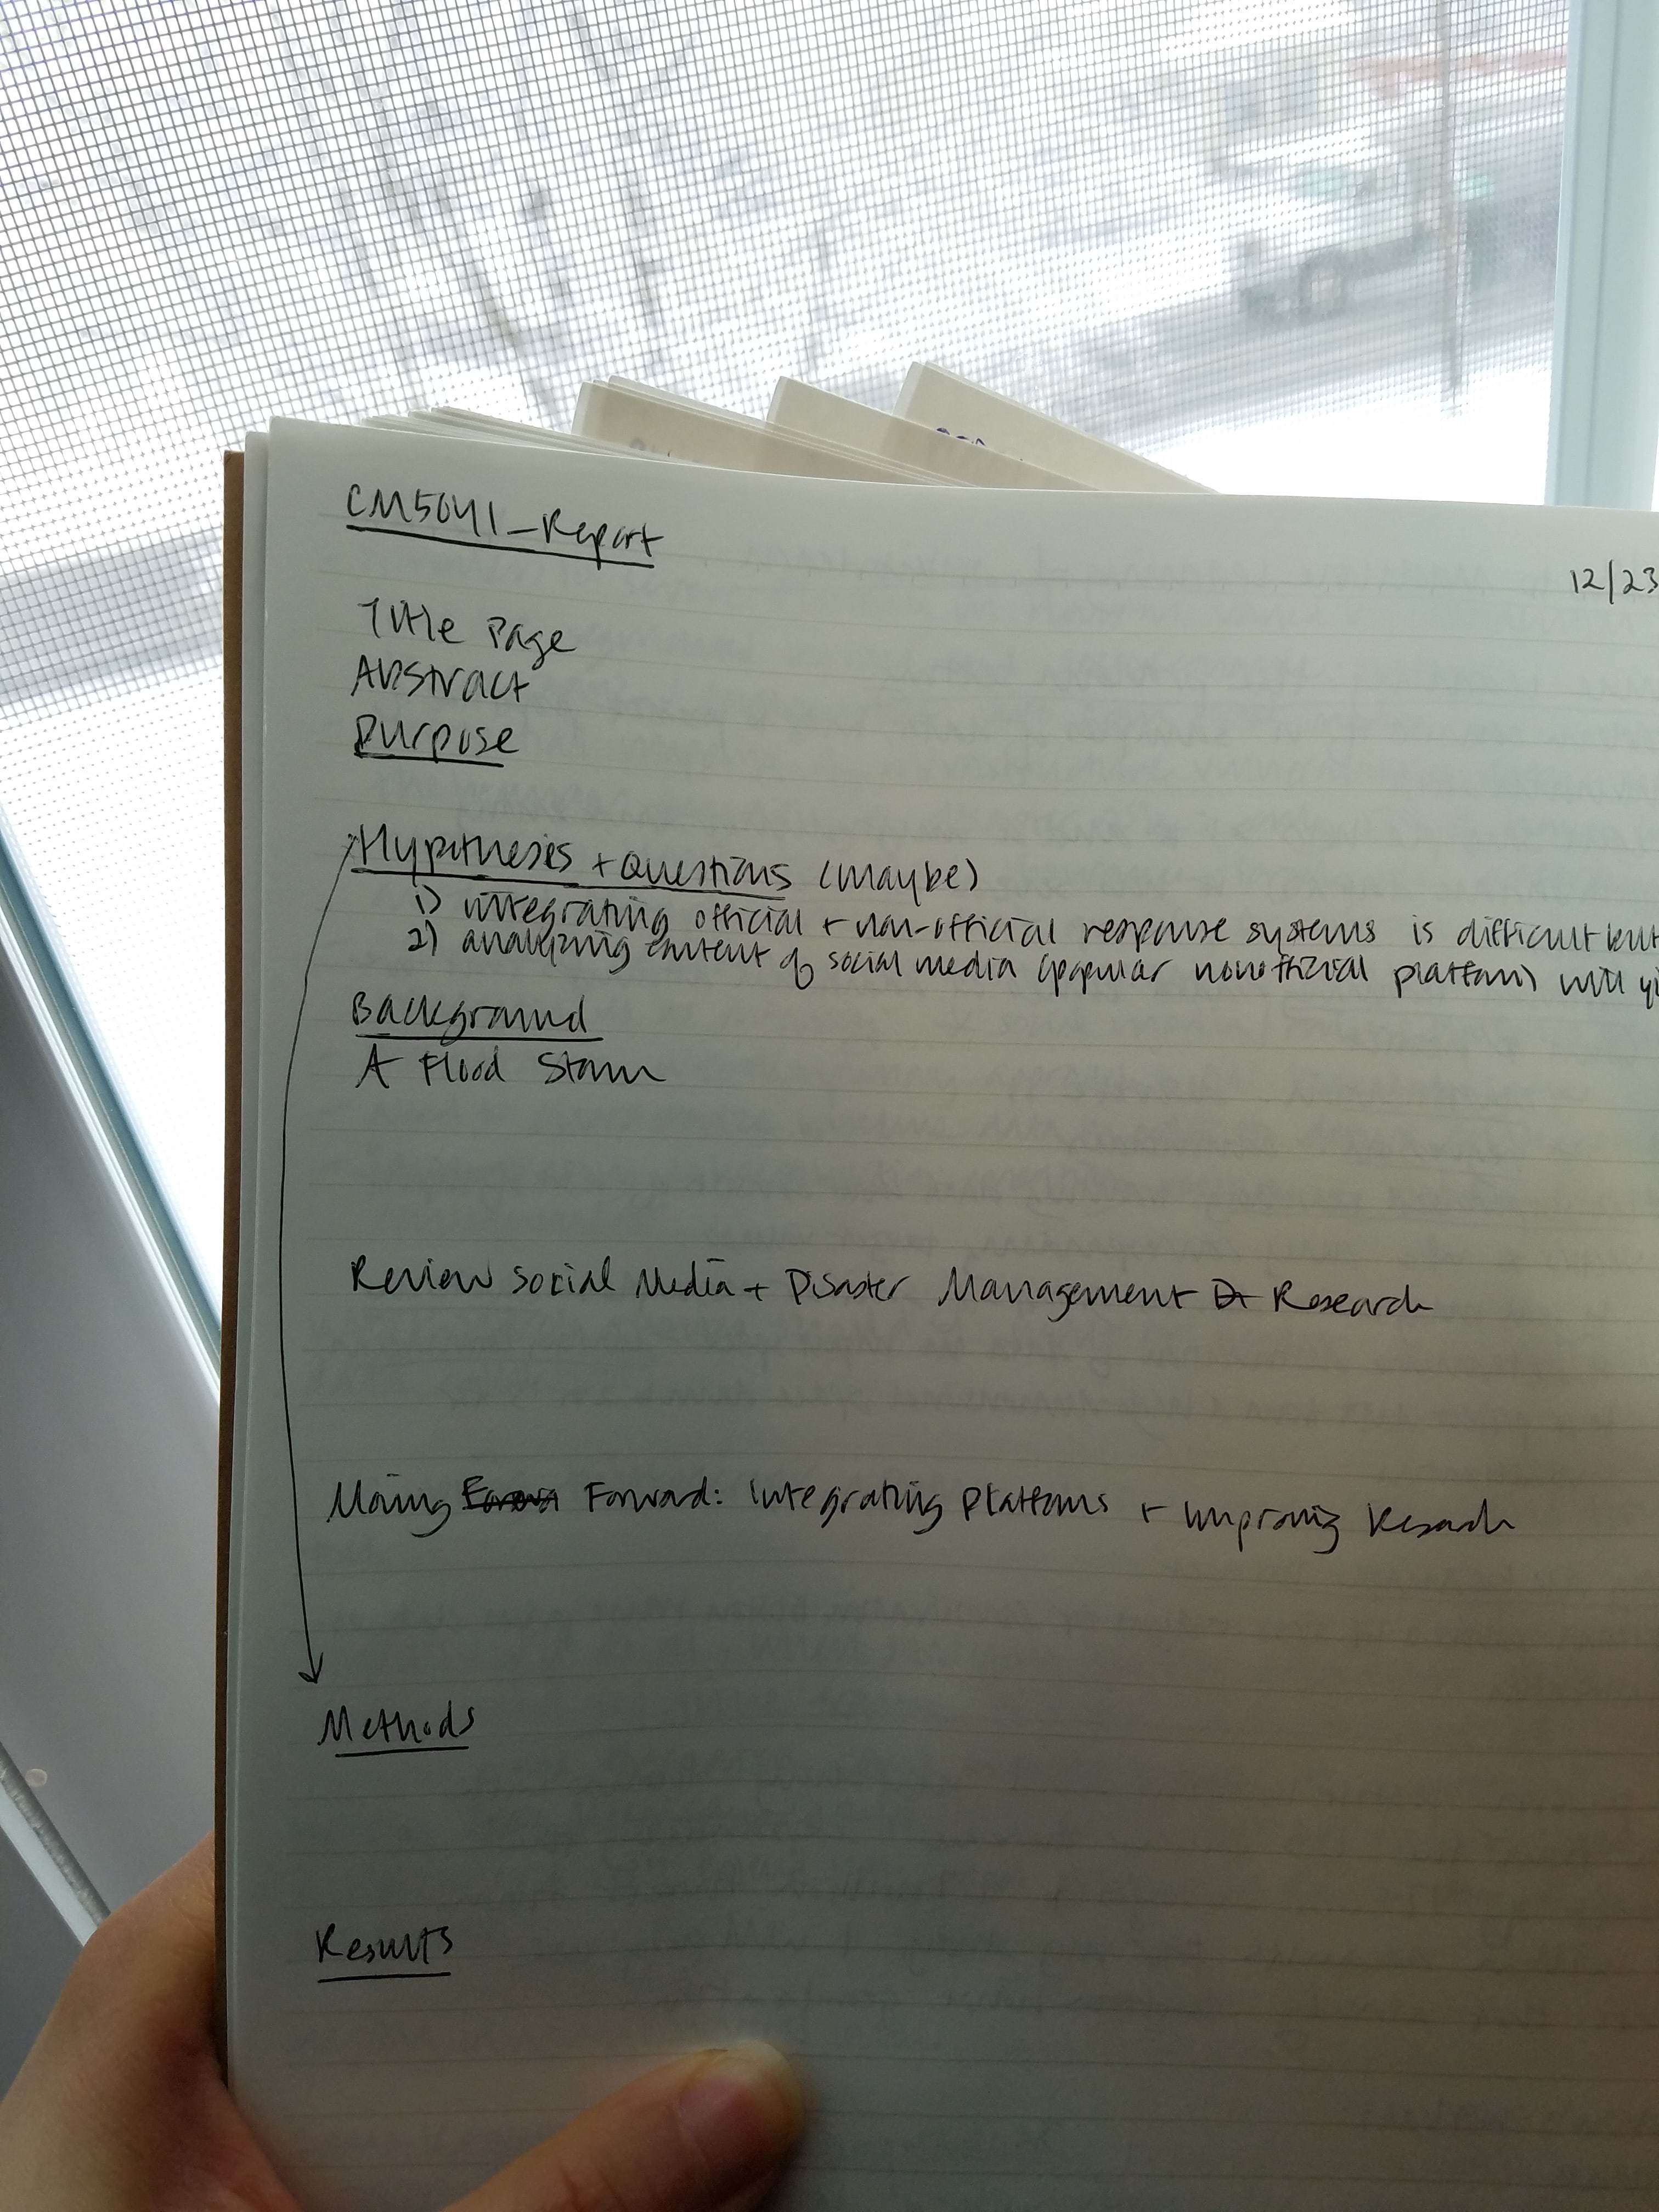 CM5041_Report
12/23
Title Page
Abstract
Purpose
Hypotheses + Questions (maybe)
1) integrating official + non-official response systems is difficult but
2) analyzing content of social media (popular nonofficial platform) will yi
Background
A Flood Storm
Review Social Media + Disaster Management Research
Moving Forward: Integrating Platforms + Improving Research
Methods
Results